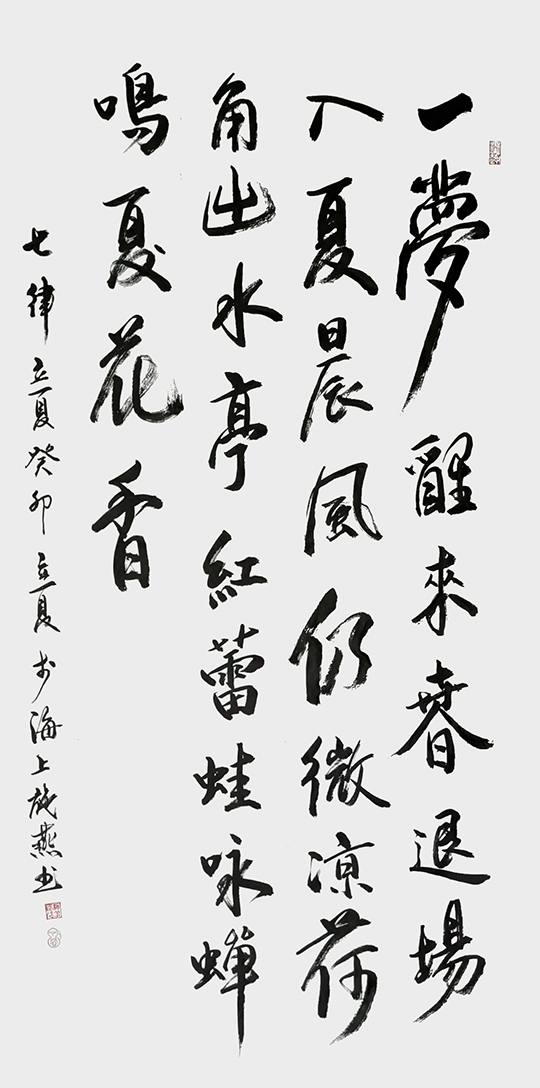 一夢醒來春退場
入夏晨風仍微涼荷
角出水亭紅蕾蛙咏蟬
鳴夏花香
七律立夏癸卯立夏於海上成燕书